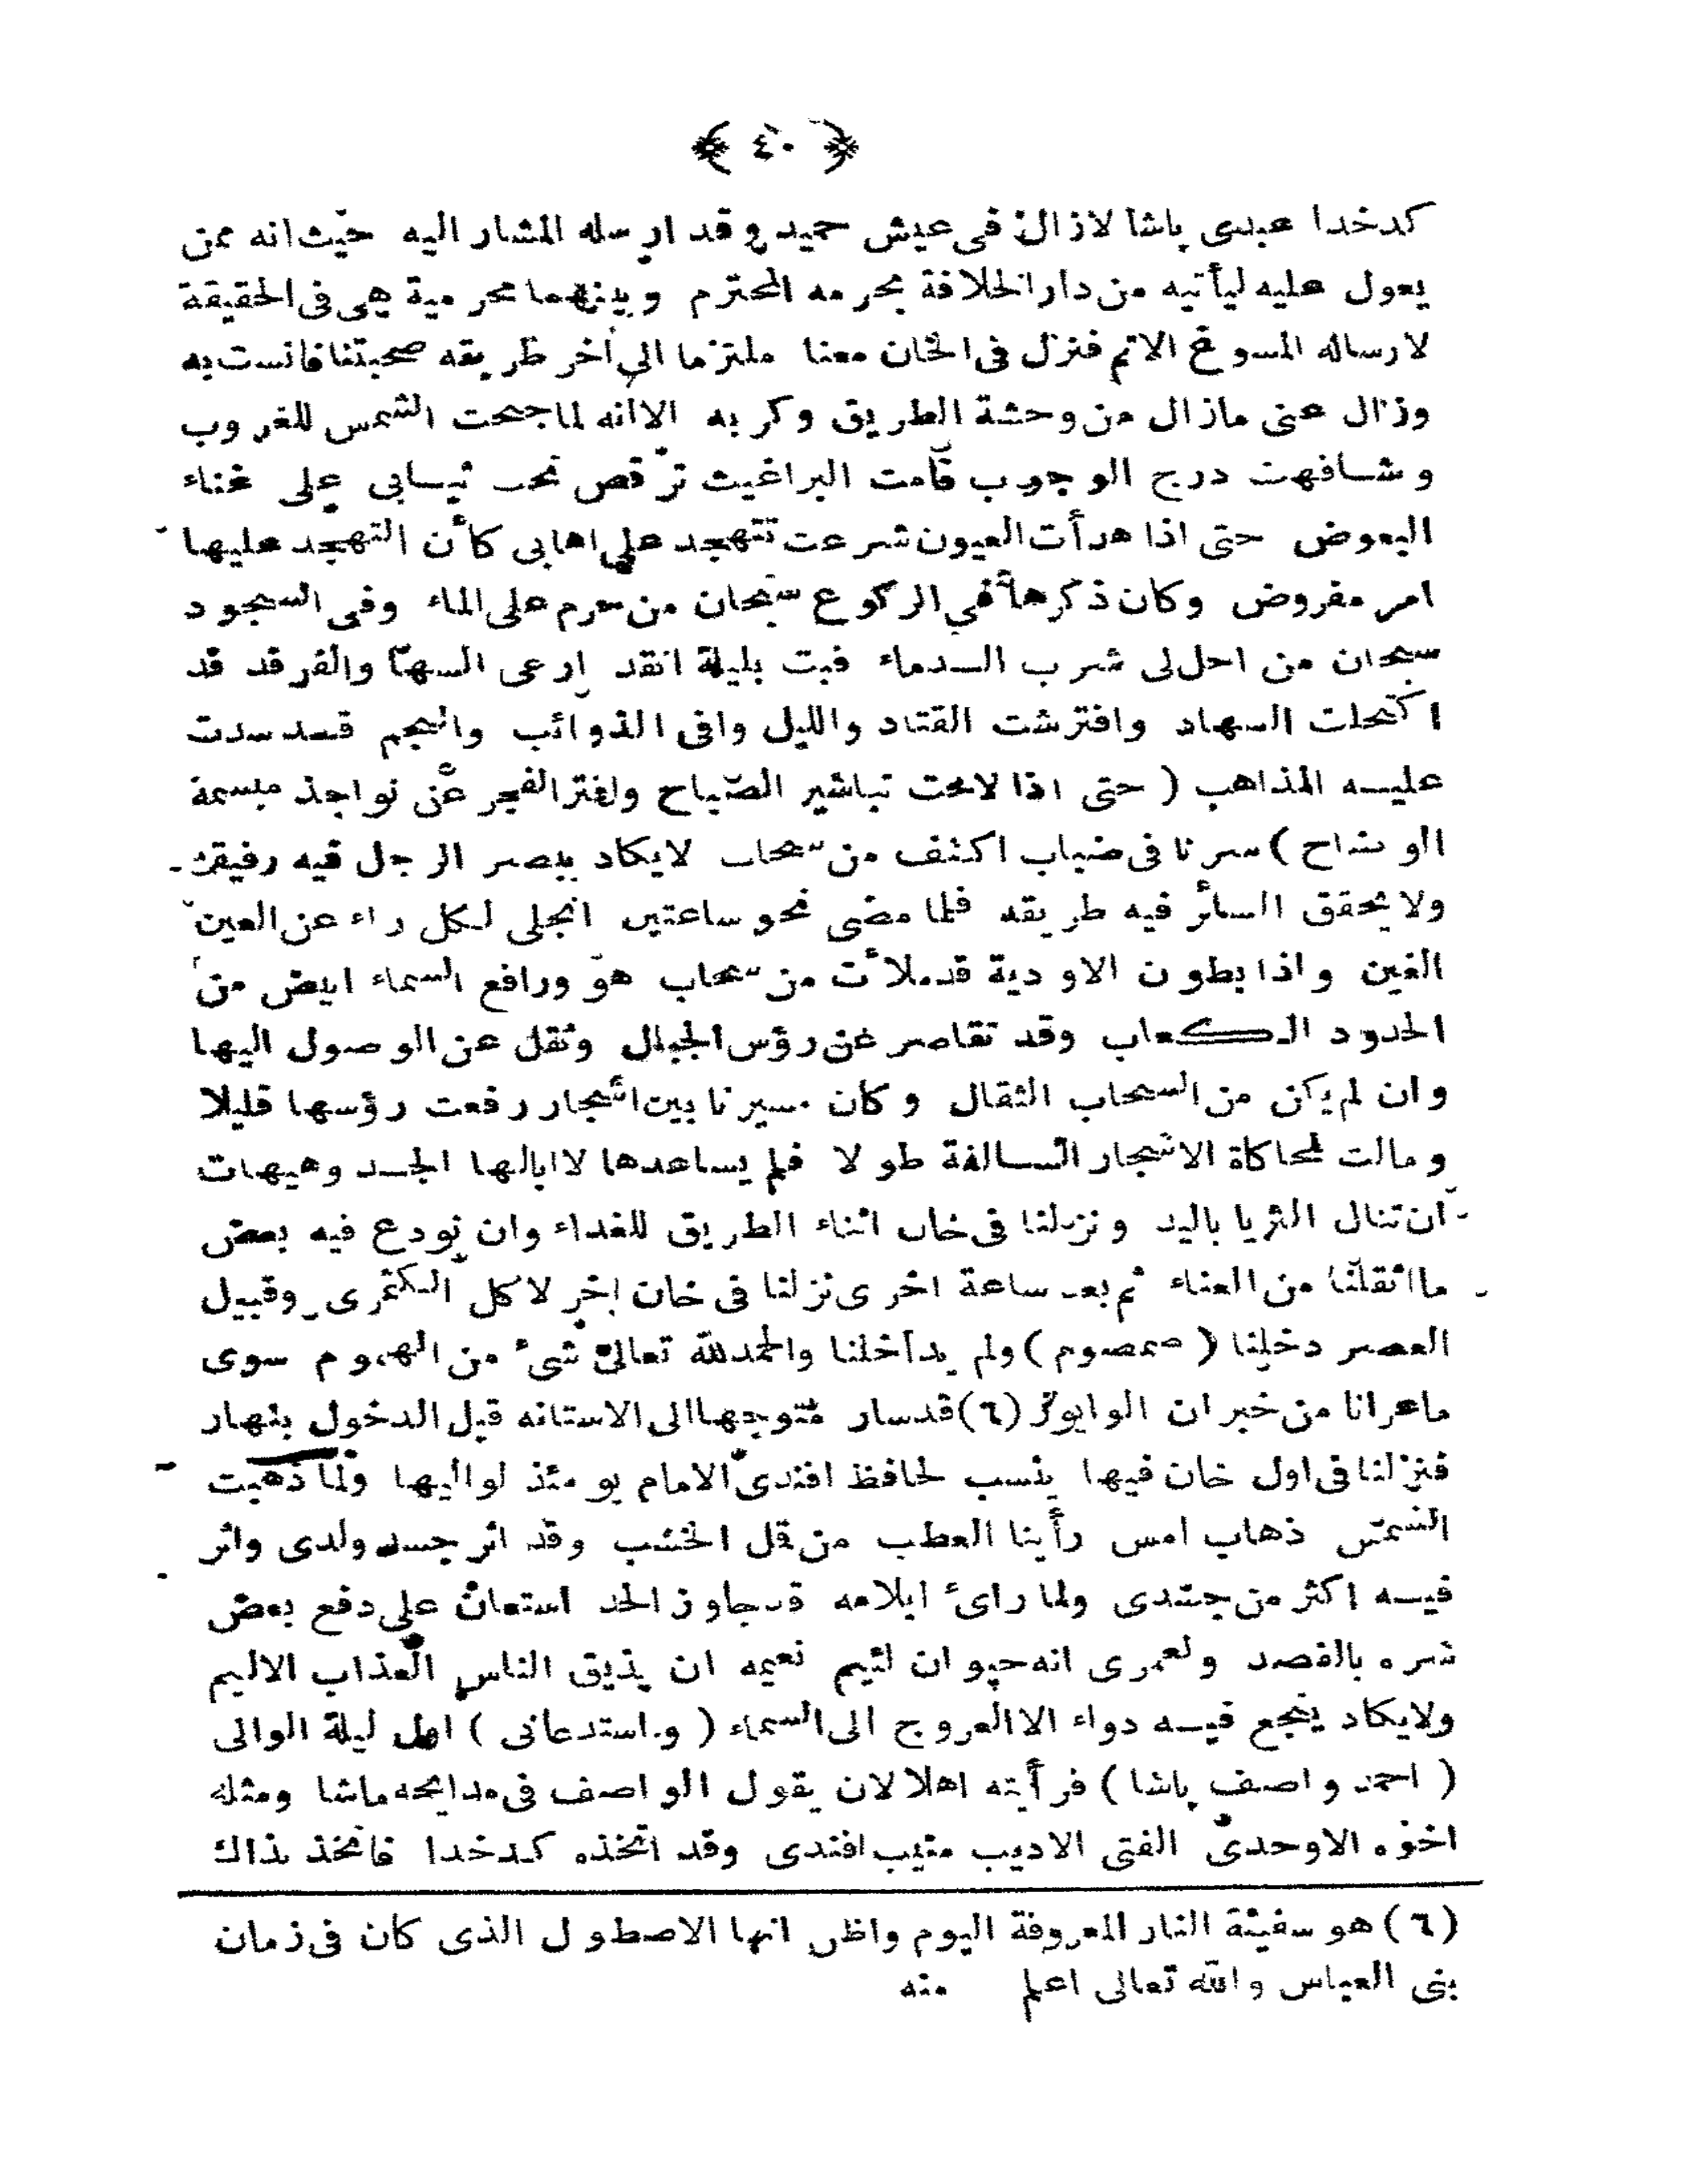 ﴿ ٤٠ ﴾
كدخدا عبدى پاشا لازال فى عيش حميد وقد ارسله المشار اليه حيث انه ممن
يعول عليه ليأتيه من دار الخلافة بحرمه المحترم وبينهما محرمية هى فى الحقيقة
لارساله المسوغ الاتم فنزل فى الخان معنا ملتزما الى أخر طريقه صحبتنا فانست به
وزال عنى مازال من وحشة الطريق وكربه الا انه لما جنحت الشمس للغروب
وشافهت درج الوجوب قامت البراغيث ترقص تحت ثيابى على غناء
البعوض حتى اذا هدأت العيون شرعت تتهجد على اهابى كأن التهجد عليها
امر مفروض وكان ذكرها فى الركوع سبحان من حرم على الماء وفى السجود
سبحان من احل لى شرب الدماء فبت بليلة انقد ارعى السها والفرقد قد
اكتحلت السهاد وافترشت القتاد والليل وافى الذوائب والنجم قد سدت
عليه المذاهب ( حتى اذا لاحت تباشير الصباح وافتر الفجر عن نواجذ مبسمة
الوضاح ) سرنا فى ضباب اكثف من سحاب لايكاد يبصر الرجل فيه رفيقه
ولا يحقق السائر فيه طريقه فلما مضى نحو ساعتين انجلى لكل راء عن العين
الغين واذا بطون الاودية قد ملأت من سحاب هو ورافع السماء ابيض من
الخدود الكعاب وقد تقاصر عن رؤس الجبال وثقل عن الوصول اليها
وان لم يكن من السحاب الثقال وكان مسيرنا بين اشجار رفعت رؤسها قليلا
ومالت لمحاكاة الاشجار السالفة طولا فلم يساعدها لاابالها الجد وهيهات
ان تنال الثريا باليد ونزلنا فى خان اثناء الطريق للغداء وان نودع فيه بعض
ما اثقلنا من العناء ثم بعد ساعة اخرى نزلنا فى خان اخر لاكل الكمثرى وقبيل
العصر دخلنا ( صمصوم ) ولم يداخلنا والحمد لله تعالى شئ من الهموم سوى
ماعرانا من خبر ان الوابور (٦) قد سار متوجها الى الاستانه قبل الدخول بنهار
فنزلنا فى اول خان فيها ينسب لحافظ افندى الامام يومئذ لواليها ولما ذهبت
الشمس ذهاب امس رأينا العطب من قمل الخشب وقد اثر جسد ولدى واثر
فيه اكثر من جسدى ولما رائ ايلامه قد جاوز الحد استعان على دفع بعض
شره بالفصد ولعمرى انه حيوان لئيم نعيمه ان يذيق الناس العذاب الاليم
ولايكاد ينجع فيه دواء الا العروج الى السماء ( واستدعانى ) اول ليلة الوالى
( احمد واصف پاشا ) فرأيته اهلا لان يقول الواصف فى مدايحه ماشا ومثله
اخوه الاوحدى الفتى الاديب منيب افندى وقد اتخذه كدخدا فاتخذ بذاك
(٦) هو سفينة النار المعروفة اليوم واظن انها الاصطول الذى كان فى زمان
بنى العباس والله تعالى اعلم منه